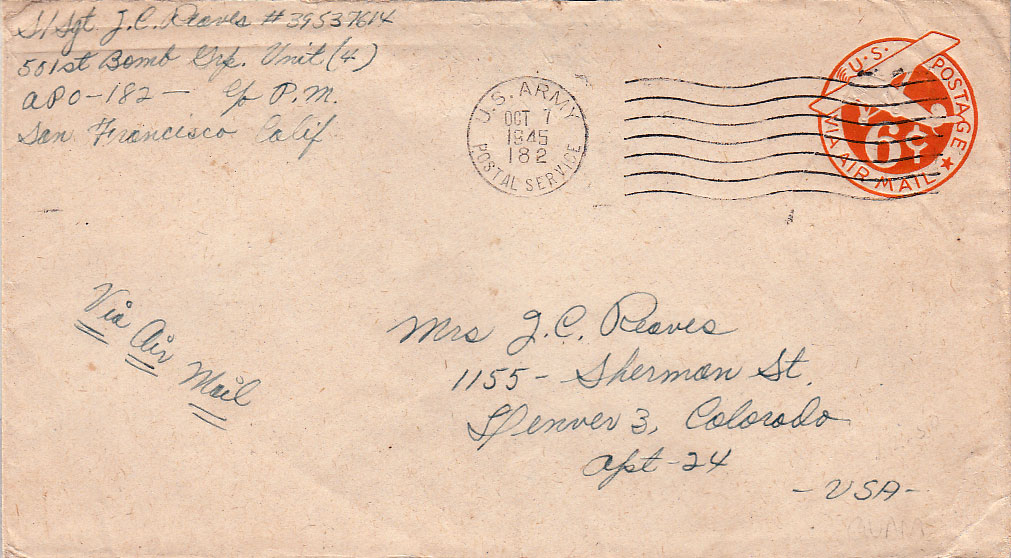 S/Sgt. J.C. Reaves # 39537614
501st Bomb Grp. Unit (4)
APO-182 — c/o P.M.
San Francisco Calif.
U.S. ARMY
OCT 7
1945
182
POSTAL SERVICE
U.S. POSTAGE
6¢
VIA AIR MAIL
Via Air Mail
Mrs J.C. Reaves
1155- Sherman St.
Denver 3, Colorado
Apt-24
-USA-